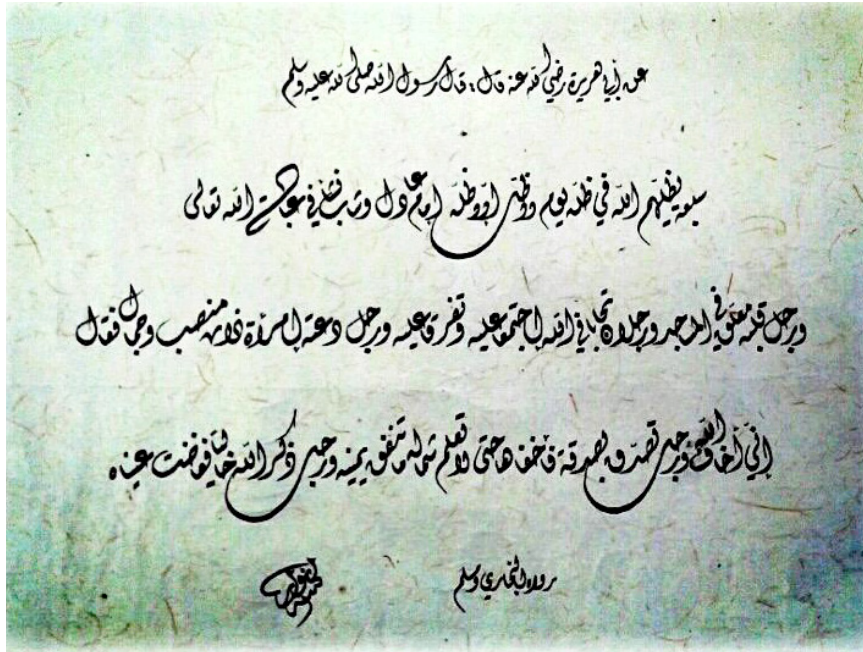 عن أبي هريرة رضي الله عنه قال: قال رسول الله صلى الله عليه وسلم
سبعة يظلهم الله في ظله يوم لا ظل إلا ظله إمام عادل وشاب نشأ في عبادة الله تعالى
ورجل قلبه معلق في المساجد ورجلان تحابا في الله اجتمعا عليه وتفرقا عليه ورجل دعته امرأة ذات منصب وجمال فقال
إني أخاف الله ورجل تصدق بصدقة فأخفاها حتى لا تعلم شماله ما تنفق يمينه ورجل ذكر الله خاليا ففاضت عيناه
رواه البخاري ومسلم